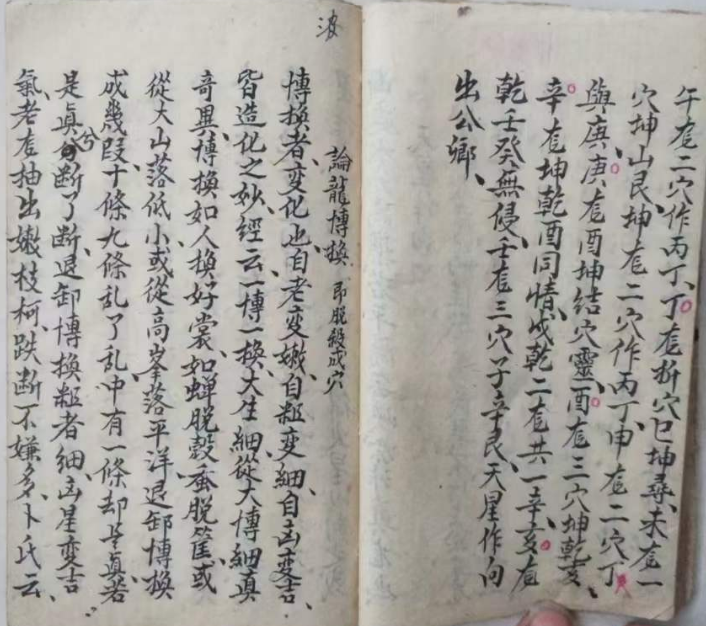 午龙二穴作丙丁、丁龙折穴巳坤尋、未龙一
穴坤山艮、坤龙二穴作丙丁、申龙二穴丁
與庚、庚龙酉坤結穴靈、酉龙三穴坤乾亥、
辛龙坤乾酉同情、戌乾二龙共一辛、亥龙
乾壬癸無侵、壬龙三穴子辛艮、天星作向
出公卿、
波
論龍博換 即脱殺成穴
博換者、變化也、自老變嫩、自粗變細、自凶變吉、
皆造化之妙、經云一博一換大生細、從大博細真
奇異、博換如人換好裳、如蟬脱殼蚕脱筐、或
從大山落低小、或從高峯落平洋、退卸博換
成幾段、十條九條乱了乱、中有一條却是真、若
是真兮断了断、退卸博換粗者細、凶星變吉
氣、老龙抽出嫩枝柯、跌断不嫌多、卜氏云、